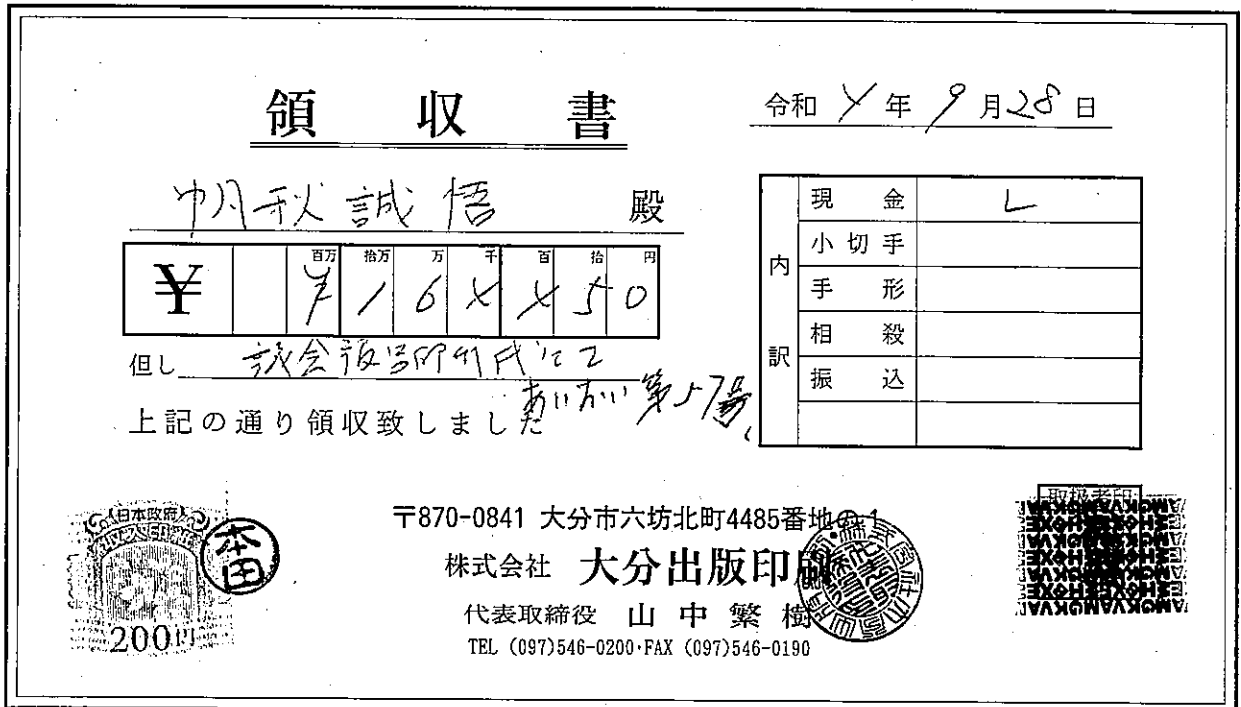 領収書
令和 4年 9月28日
帆秋誠悟 殿
¥ 百万 拾万 万 千 百 拾 円
¥164450
但し 議会報告印刷代にて
あいおい第57号
上記の通り領収致しました
内訳
現金 レ
小切手
手形
相殺
振込
取扱者印
日本政府
収入印紙
200円
本田
〒870-0841 大分市六坊北町4485番地の1
株式会社 大分出版印刷
代表取締役 山中繁樹
TEL (097)546-0200・FAX (097)546-0190